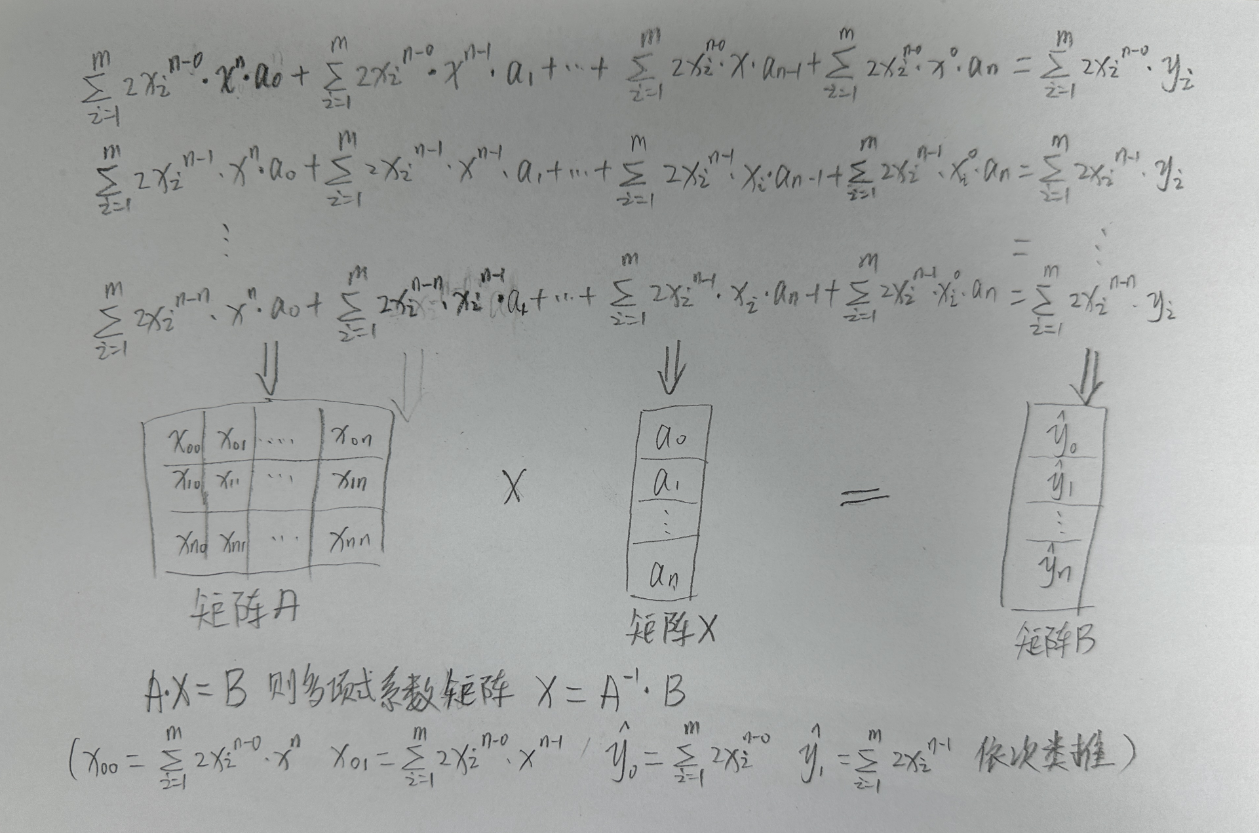 $\sum_{i=1}^{m} 2x_i^{n-0} \cdot x^n \cdot a_0 + \sum_{i=1}^{m} 2x_i^{n-0} \cdot x^{n-1} \cdot a_1 + \cdots + \sum_{i=1}^{m} 2x_i^{n-0} \cdot x \cdot a_{n-1} + \sum_{i=1}^{m} 2x_i^{n-0} \cdot x^0 \cdot a_n = \sum_{i=1}^{m} 2x_i^{n-0} \cdot y_i$
$\sum_{i=1}^{m} 2x_i^{n-1} \cdot x^n \cdot a_0 + \sum_{i=1}^{m} 2x_i^{n-1} \cdot x^{n-1} \cdot a_1 + \cdots + \sum_{i=1}^{m} 2x_i^{n-1} \cdot x_i \cdot a_{n-1} + \sum_{i=1}^{m} 2x_i^{n-1} \cdot x_i^0 \cdot a_n = \sum_{i=1}^{m} 2x_i^{n-1} \cdot y_i$
⋮ = ⋮
$\sum_{i=1}^{m} 2x_i^{n-n} \cdot x^n \cdot a_0 + \sum_{i=1}^{m} 2x_i^{n-n} \cdot x_i^{n-1} \cdot a_1 + \cdots + \sum_{i=1}^{m} 2x_i^{n-1} \cdot x_i \cdot a_{n-1} + \sum_{i=1}^{m} 2x_i^{n-1} \cdot x_i^0 \cdot a_n = \sum_{i=1}^{m} 2x_i^{n-n} \cdot y_i$
⇓ ⇓ ⇓ ⇓
$x_{00}$ $x_{01}$ ⋯ $x_{0n}$ $a_0$ $\hat{y}_0$
$x_{10}$ $x_{11}$ ⋯ $x_{1n}$ × $a_1$ = $\hat{y}_1$
⋮ ⋮
$x_{n0}$ $x_{n1}$ ⋯ $x_{nn}$ $a_n$ $\hat{y}_n$
矩阵A 矩阵X 矩阵B
A·X=B 则多项式系数矩阵 $X = A^{-1} \cdot B$
($x_{00} = \sum_{i=1}^{m} 2x_i^{n-0} \cdot x^n$ $x_{01} = \sum_{i=1}^{m} 2x_i^{n-0} \cdot x^{n-1}$ / $\hat{y}_0 = \sum_{i=1}^{m} 2x_i^{n-0}$ $\hat{y}_1 = \sum_{i=1}^{m} 2x_i^{n-1}$ 依次类推)